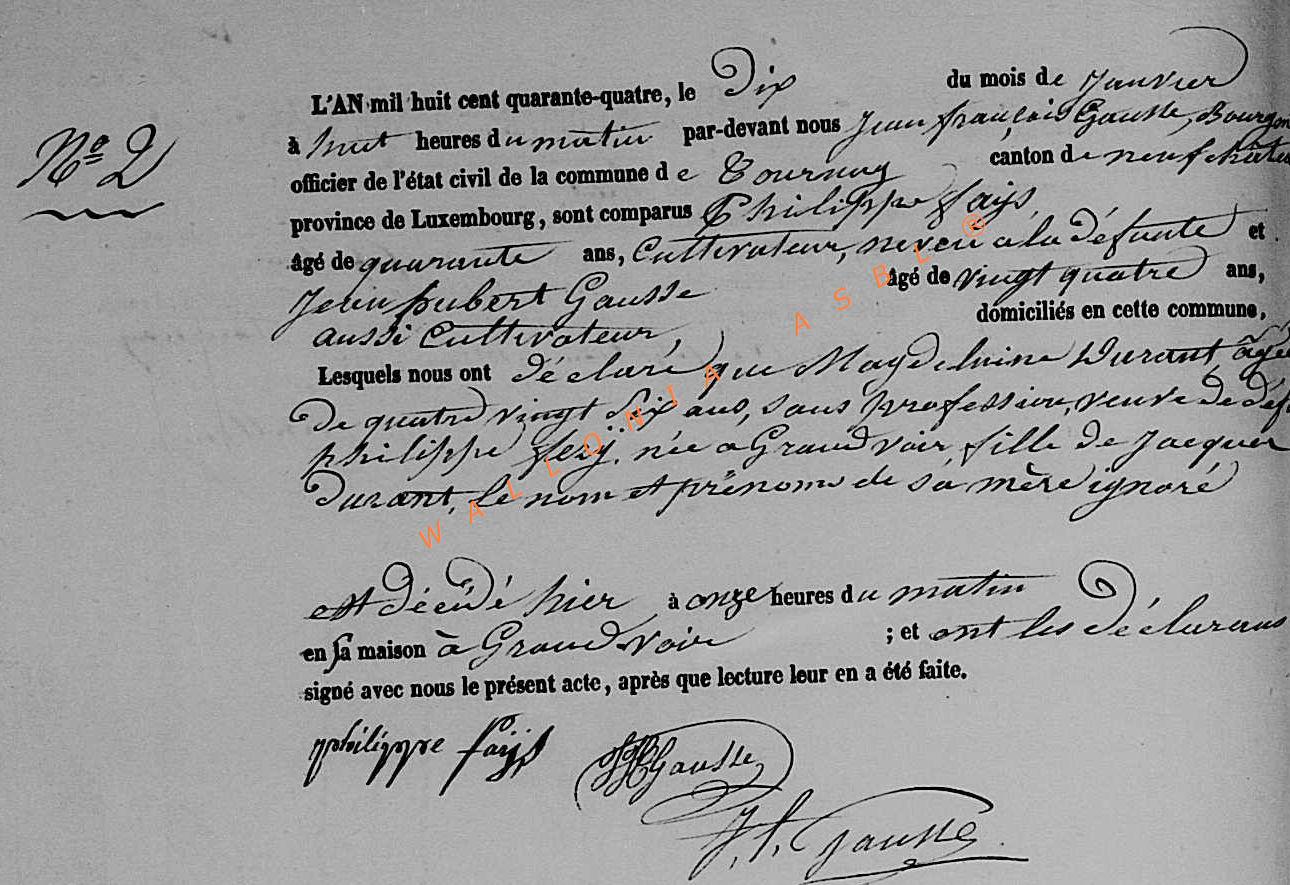 L'AN mil huit cent quarante-quatre, le Dix du mois de Janvier
Nº 2
à huit heures du matin par-devant nous Jean françois Gausse, Bourgm
officier de l'état civil de la commune de Tournay canton de neufchâte
province de Luxembourg, sont comparus Philippe fays
âgé de quarante ans, Cultivateur, neveu à la défunte et
Jean hubert Gausse âgé de vingt quatre ans,
aussi Cultivateur, domiciliés en cette commune,
Lesquels nous ont déclaré que Magdelaine Durant âgée
De quatre vingt Six ans, sans profession, veuve de déf
philippe fezÿ, née à Grandvoir, fille de Jacques
Durant, le nom et prénoms de sa mère ignoré
est décédé hier à onze heures du matin
en sa maison à Grandvoir ; et ont les déclarans
signé avec nous le présent acte, après que lecture leur en a été faite.
philippe fays JHGausse
J. f. Gausse
WALLONIA ASBL ®